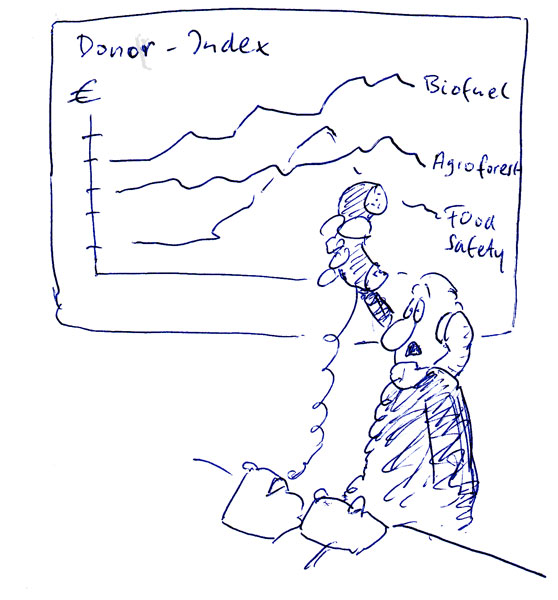 Donor - Index
€
Biofuel
Agroforest
Food
Safety